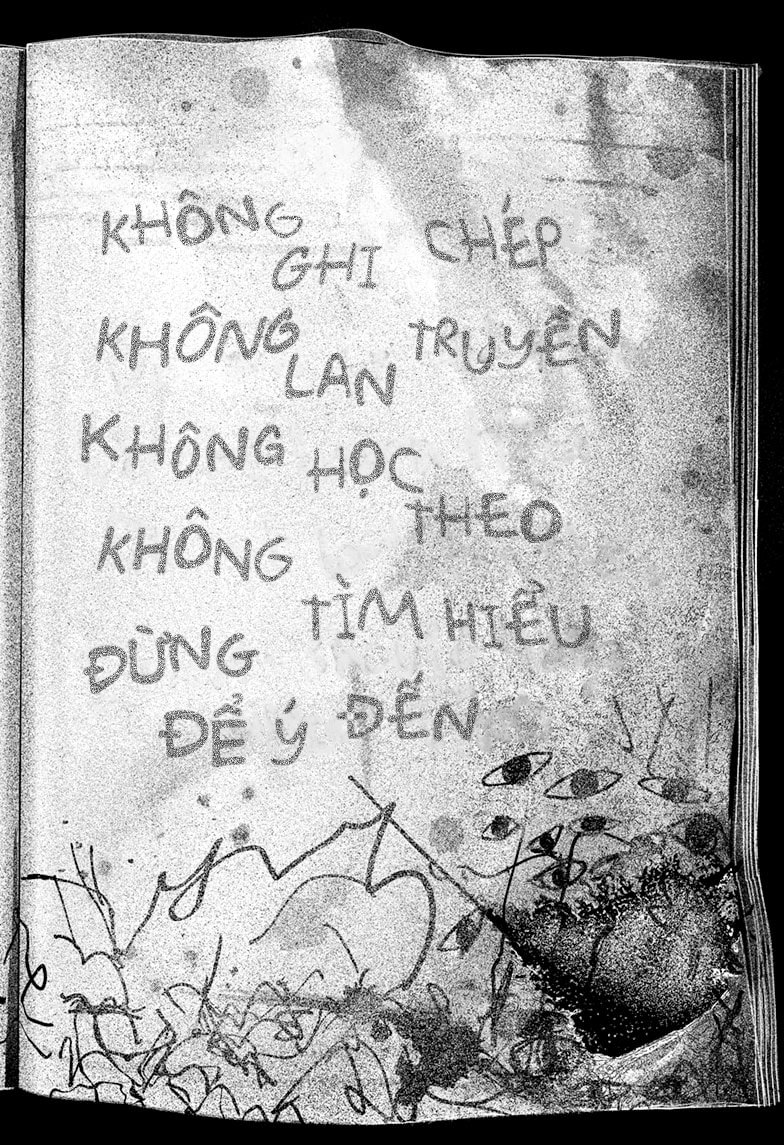 KHÔNG GHI CHÉP
KHÔNG LAN TRUYỀN
KHÔNG HỌC THEO
KHÔNG TÌM HIỂU
ĐỪNG ĐỂ Ý ĐẾN